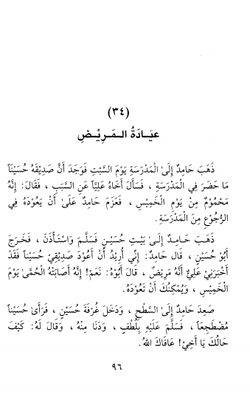 (٣٤)
عِيَادَةُ المَرِيْضِ
ذَهَبَ حَامِدٌ إِلَى المَدْرَسَةِ يَوْمَ السَّبْتِ فَوَجَدَ أَنَّ صَدِيْقَهُ حُسَيْناً
مَا حَضَرَ فِي المَدْرَسَةِ ، فَسَأَلَ أَخَاهُ عَلِيّاً عَنِ السَّبَبِ ، فَقَالَ: إِنَّهُ
مَحْمُوْمٌ مِنْ يَوْمِ الْخَمِيْسِ ، فَعَزَمَ حَامِدٌ عَلَى أَنْ يَعُوْدَهُ فِي
الرُّجُوْعِ مِنَ الْمَدْرَسَةِ.
ذَهَبَ حَامِدٌ إِلَى بَيْتِ حُسَيْنٍ فَسَلَّمَ وَاسْتَأْذَنَ ، فَخَرَجَ
أَبُوْهُ ، قَالَ حَامِدٌ: إِنِّي أُرِيْدُ أَنْ أَعُوْدَ صَدِيْقِي حُسَيْناً فَقَدْ
أَخْبَرَنِي عَلِيٌّ أَنَّهُ مَرِيْضٌ ، قَالَ أَبُوْهُ: نَعَمْ! إِنَّهُ أَصَابَتْهُ الْحُمَّى يَوْمَ
الْخَمِيْسِ ، وَيُمْكِنُكَ أَنْ تَعُوْدَهُ.
صَعِدَ حَامِدٌ إِلَى السَّطْحِ ، وَدَخَلَ غُرْفَةَ حُسَيْنٍ ، فَرَأَىٰ حُسَيْناً
مُضْطَجِعاً ، فَسَلَّمَ عَلَيْهِ بِلُطْفٍ ، وَدَنَا مِنْهُ ، وَقَالَ لَهُ: كَيْفَ
حَالُكَ يَا أَخِيْ! عَافَاكَ اللهُ.
٩٦